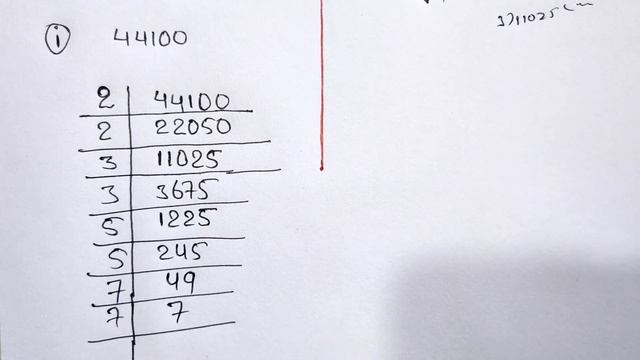 i 44100
2 44100
2 22050
3 11025
3 3675
5 1225
5 245
7 49
7 7
3)11025(